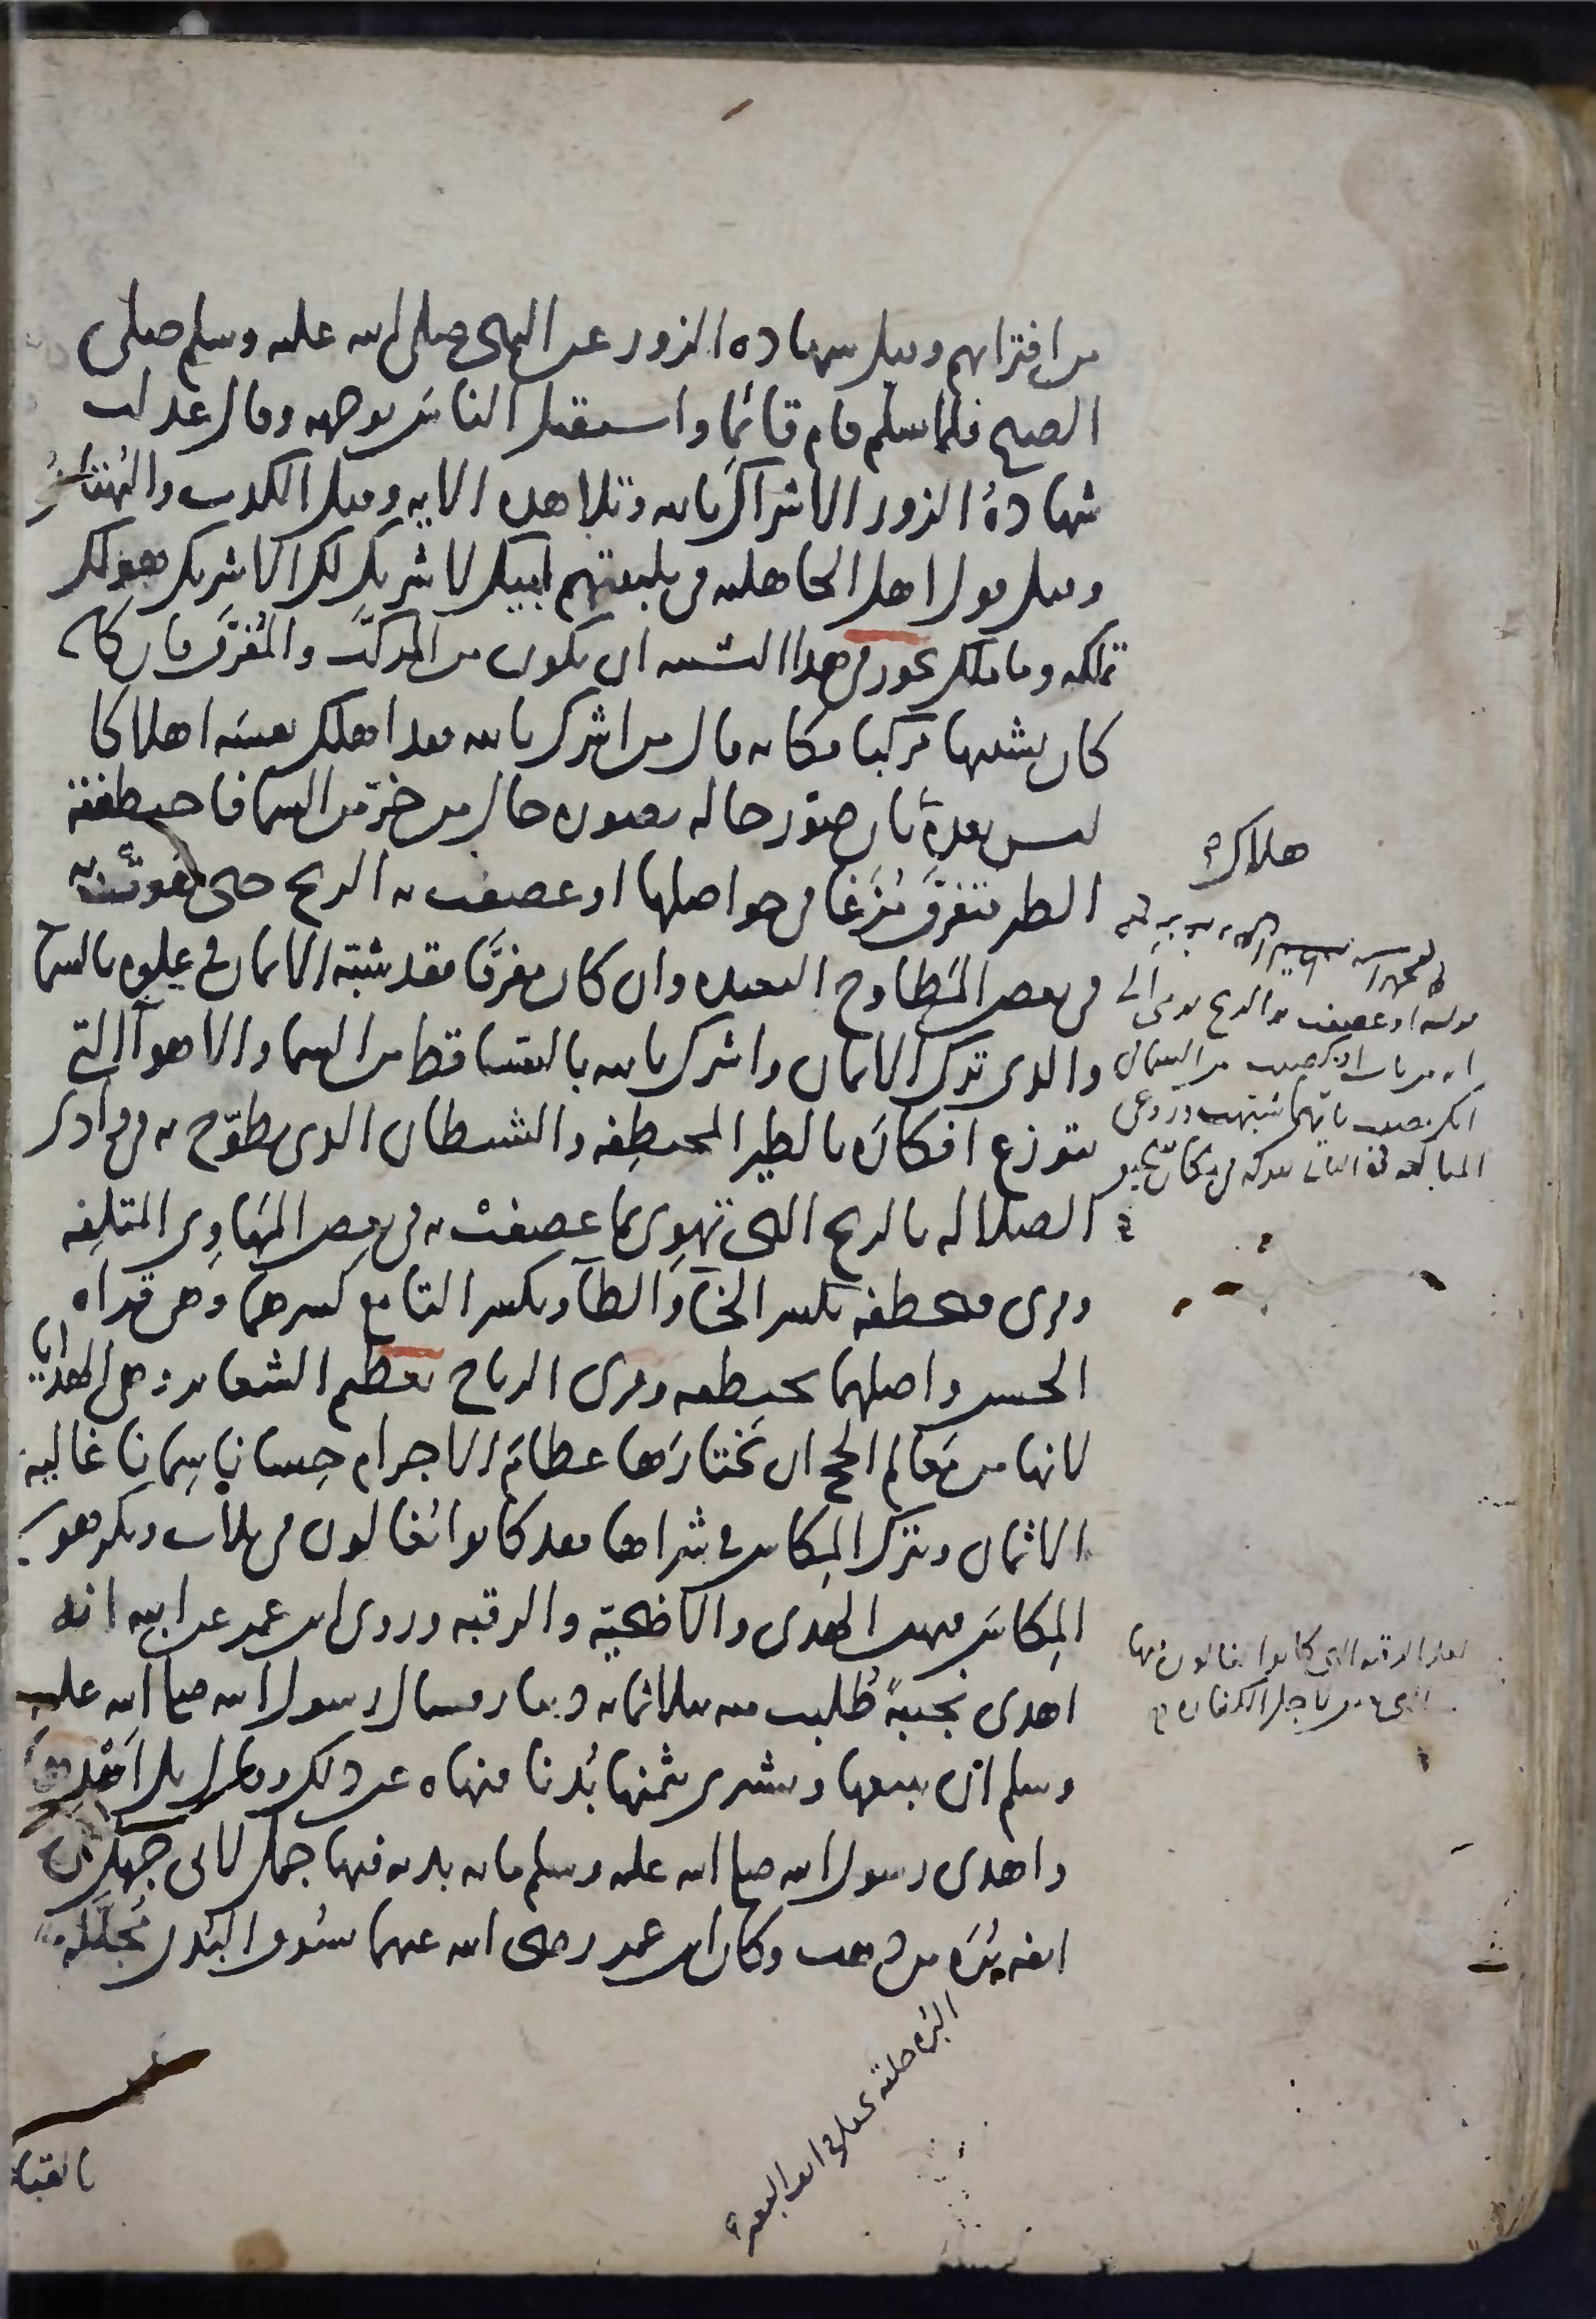 من افترائهم وقيل شهادة الزور عن النبي صلى الله عليه وسلم صلى
الصبح فلما سلم قام قائما واستقبل الناس بوجهه وقال عدلت
شهادة الزور الاشراك بالله وتلا هذه الاية وقيل الكذب والبهتان
وقيل قول اهل الجاهلية في تلبيتهم لبيك لا شريك لك الا شريك هو لك
تملكه وما ملك يجوز في هذا التشبيه ان يكون من المركب والمفرق فان
كان تشبيها مركبا فكانه قال من اشرك بالله فقد اهلك نفسه اهلاكا
ليس بعده بان صور حاله بصورة حال من خر من السما فاختطفته
الطير فتفرق مزعا في حواصلها او عصفت به الريح حتى هوت به
في بعض المطاوح البعيدة وان كان مفرقا فقد شبه الايمان في علوه بالسما
والذي ترك الايمان واشرك بالله بالساقط من السما والاهوآ التي
تتوزع افكاره بالطير المختطفة والشيطان الذي يطوح به في وادي
الضلالة بالريح التي تهوي بما عصفت به في بعض المهاوي المتلفة
وقرئ فتخطفه بكسر الخآ والطآ وبكسر التا مع كسرهما وهي قراة
الحسن واصلهما تختطفه وقرئ الرياح تعظيم الشعاير وهي الهدايا
لانها من معالم الحج ان يختارها عظام الاجرام حسانا سمانا غالية
الاثمان ويترك المكاس في شراها فقد كانوا يغالون في ثلاث ويكرهون
المكاس فيهن الهدي والاضحية والرقبة وروى ابن عمر عن ابيه انه
اهدى نجيبة طلبت منه بثلاثمائة دينار فسال رسول الله صلى الله عليه
وسلم ان يبيعها ويشتري بثمنها بدنا فنهاه عن ذلك وقال بل اهدها
واهدى رسول الله صلى الله عليه وسلم مائة بدنة فيها جمل لابي جهل في
انفه برة من ذهب وكان ابن عمر رضي الله عنهما يسوق البدن مجللة
هلاك
قوله او عصفت به الريح
لعل الرقبة التي كانوا يغالون فيها
البرة حلقة تجعل في انف البعير
بالقباطي